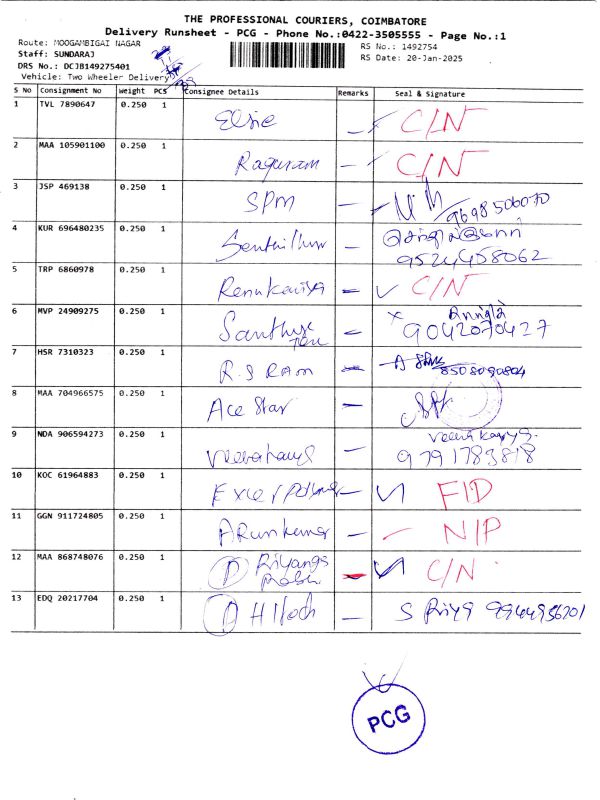 THE PROFESSIONAL COURIERS, COIMBATORE
Delivery Runsheet - PCG - Phone No.:0422-3505555 - Page No.:1
Route: MOOGAMBIGAI NAGAR
RS No.: 1492754
Staff: SUNDARAJ
RS Date: 20-Jan-2025
DRS No.: DCJB149275401
Vehicle: Two Wheeler Delivery
S No Consignment No Weight PCS Consignee Details Remarks Seal & Signature
1 TVL 7890647 0.250 1 Elsie - C/N
2 MAA 105901100 0.250 1 Raguram - C/N
3 JSP 469138 0.250 1 SPM - 9698506070
4 KUR 696480235 0.250 1 -
9524458062
5 TRP 6860978 0.250 1 - C/N
6 MVP 24909275 0.250 1 -
9042070427
7 HSR 7310323 0.250 1 R.S RAM - 8508090804
8 MAA 704966575 0.250 1 Ace Star -
9 NDA 906594273 0.250 1 -
9791783818
10 KOC 61964883 0.250 1 - FID
11 GGN 911724805 0.250 1 Arunkumar - N/P
12 MAA 868748076 0.250 1 - C/N
13 EDQ 20217704 0.250 1 - S Priya 9944956201
PCG